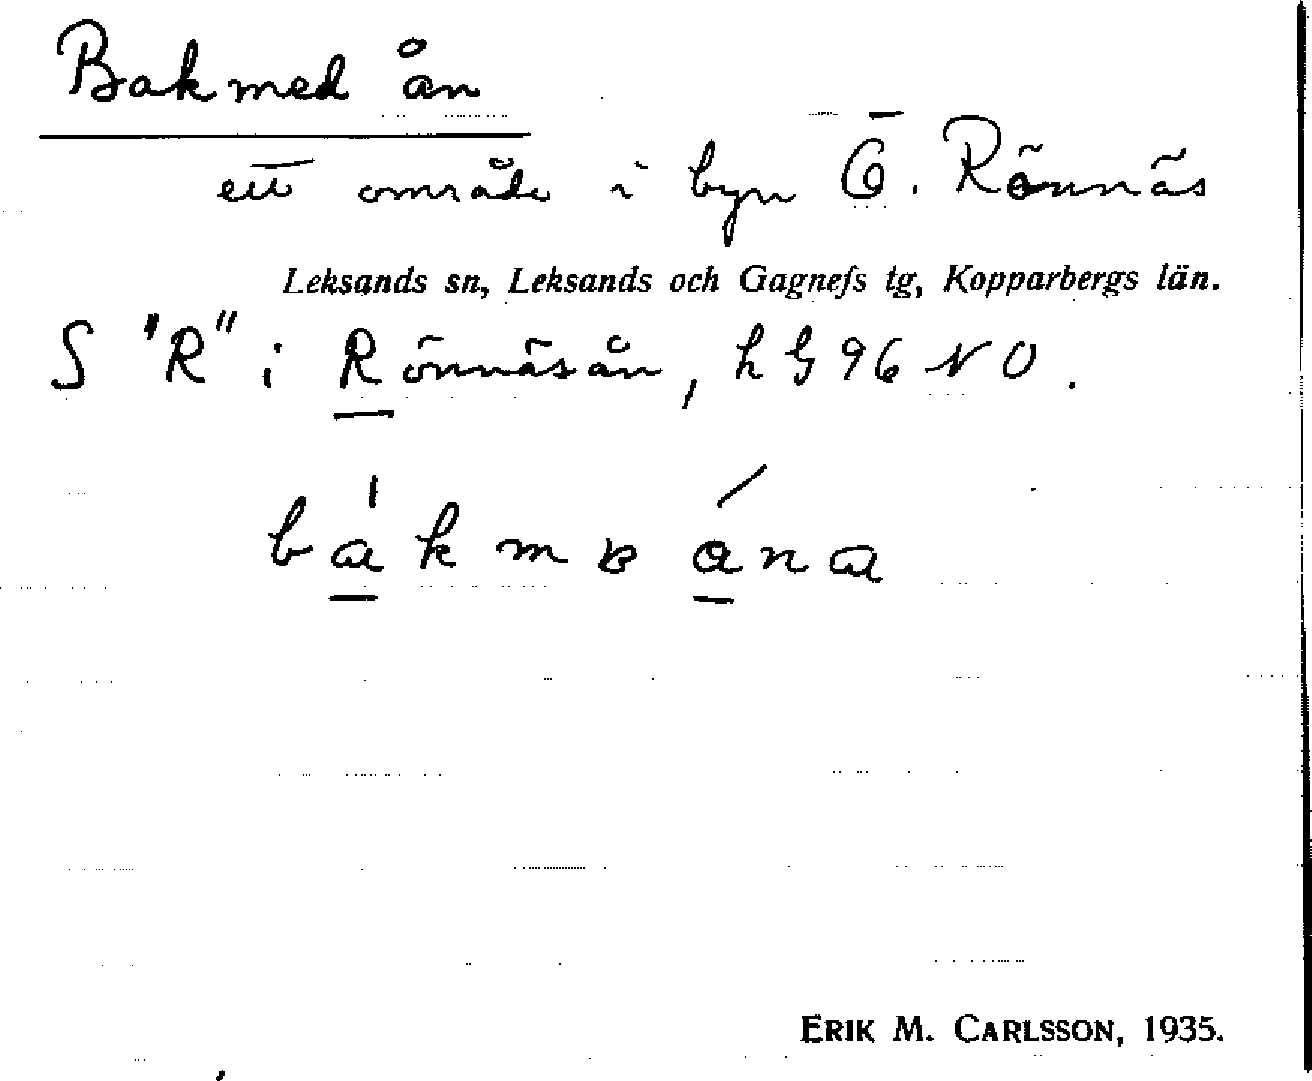 Bakmed ån
ett område i byn Ö. Rönnäs
Leksands sn, Leksands och Gagnefs tg, Kopparbergs län.
S "R" i Rönnäsån, h G 96 NO.
bákmɐ ána
ERIK M. CARLSSON, 1935.